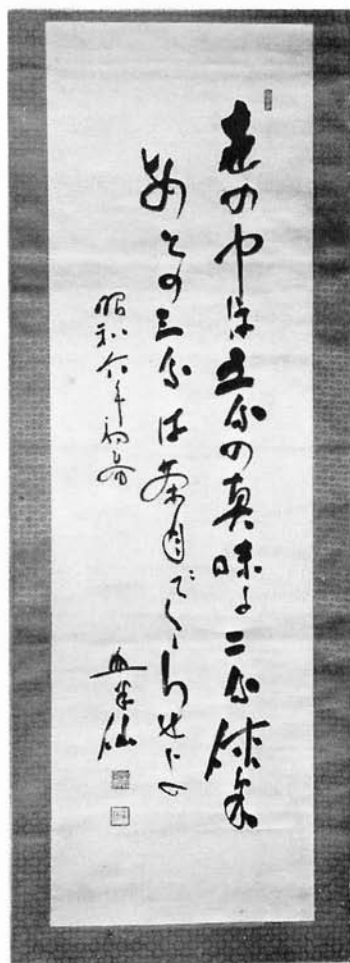 世の中は五分の真味に二分侠気
あとの三分は茶目でくらせよ
昭和六年初春
仙